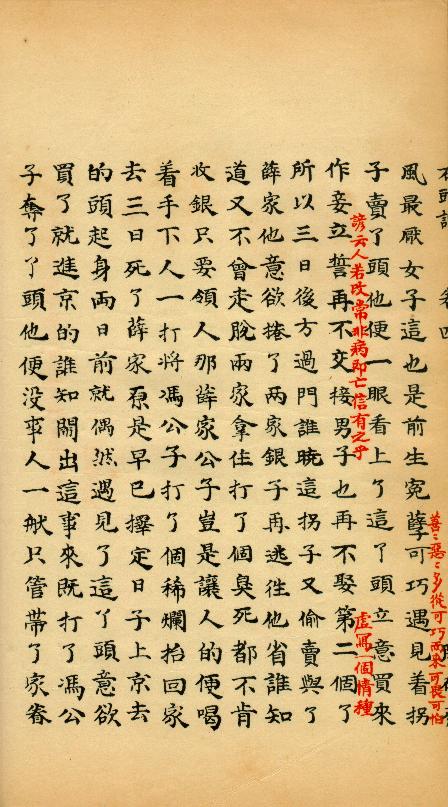 石頭記 卷四
風最厭女子這也是前生寃孽可巧遇見着拐
善善惡惡多從可巧而來可畏可怕
子賣了頭他便一眼看上了這了頭立意買來
作妾立誓再不交接男子也再不娶第二個了
諺云人若改常非病即亡信有之乎
虛寫一個情種
所以三日後方過門誰曉這拐子又偷賣與了
薛家他意欲捲了兩家銀子再逃往他省誰知
道又不曾走脫兩家拿住打了個臭死都不肯
收銀只要領人那薛家公子豈是讓人的便喝
着手下人一打將馮公子打了個稀爛抬回家
去三日死了薛家原是早已擇定日子上京去
的頭起身兩日前就偶然遇見了這丫頭意欲
買了就進京的誰知鬧出這事來既打了馮公
子奪了了頭他便没事人一般只管帶了家眷